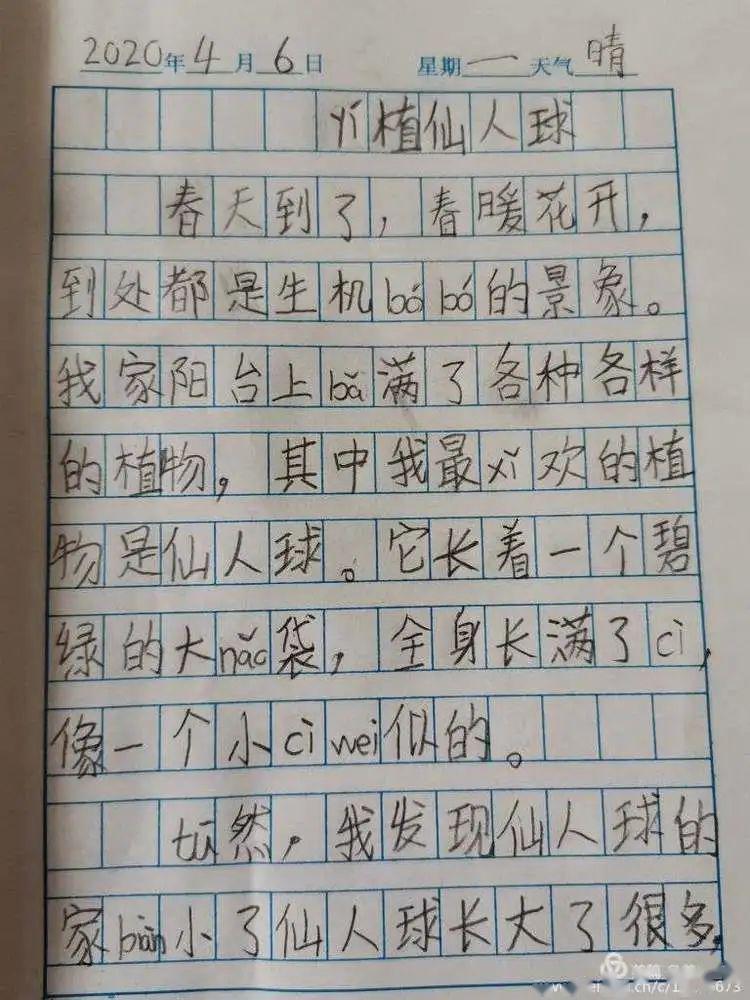 2020年4月6日 星期一 天气晴
yí植仙人球
春天到了，春暖花开，
到处都是生机bó bó的景象。
我家阳台上bǎ满了各种各样
的植物，其中我最xǐ欢的植
物是仙人球。它长着一个碧
绿的大nǎo袋，全身长满了cì，
像一个小cì wei似的。
tū然，我发现仙人球的
家biàn小了仙人球长大了很多，